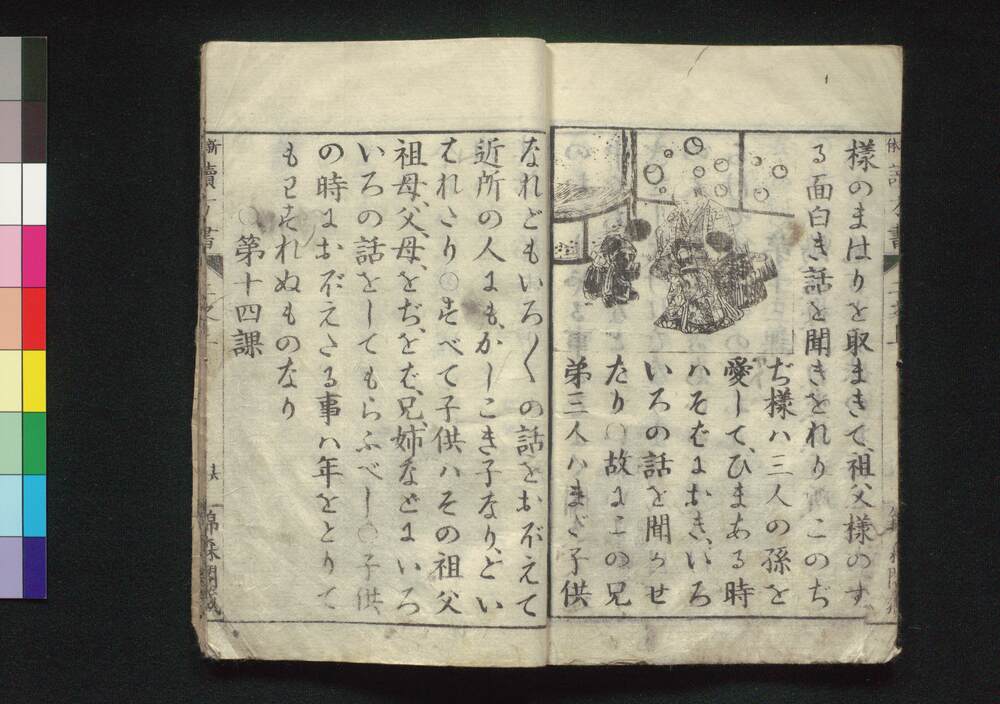 様のまはりを取まきて、祖父様のす
る面白き話を聞きをれり〇このぢ
ぢ様ハ三人の孫を
愛して、ひまある時
ハそばにおき、いろ
いろの話を聞かせ
たり〇故にこの兄
弟三人ハまだ子供
なれどもいろ〱の話をおぼえて
近所の人にも、かしこき子なり、とい
はれたり〇すべて子供ハその祖父
祖母、父、母、をぢ、をば、兄、姉などにいろ
いろの話をしてもらふべし〇子供
の時におぼえたる事ハ年をとりて
もわすれぬものなり
〇第十四課
新 讀方書
錦森閣蔵